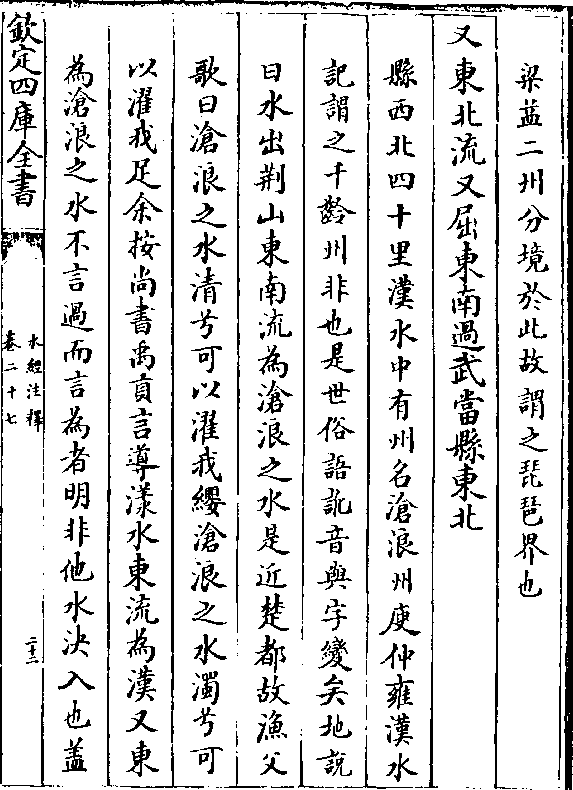 梁益二州分境於此故謂之琵琶界也
又東北流又屈東南過武當縣東北
縣西北四十里漢水中有州名滄浪州庾仲雍漢水
記謂之千齡州非也是世俗語訛音與字變矣地說
曰水出荆山東南流為滄浪之水是近楚都故漁父
歌曰滄浪之水清兮可以濯我纓滄浪之水濁兮可
以濯我足余按尚書禹貢言導漾水東流為漢又東
為滄浪之水不言過而言為者明非他水決入也葢
欽定四庫全書
水經注釋
卷二十七
二十二